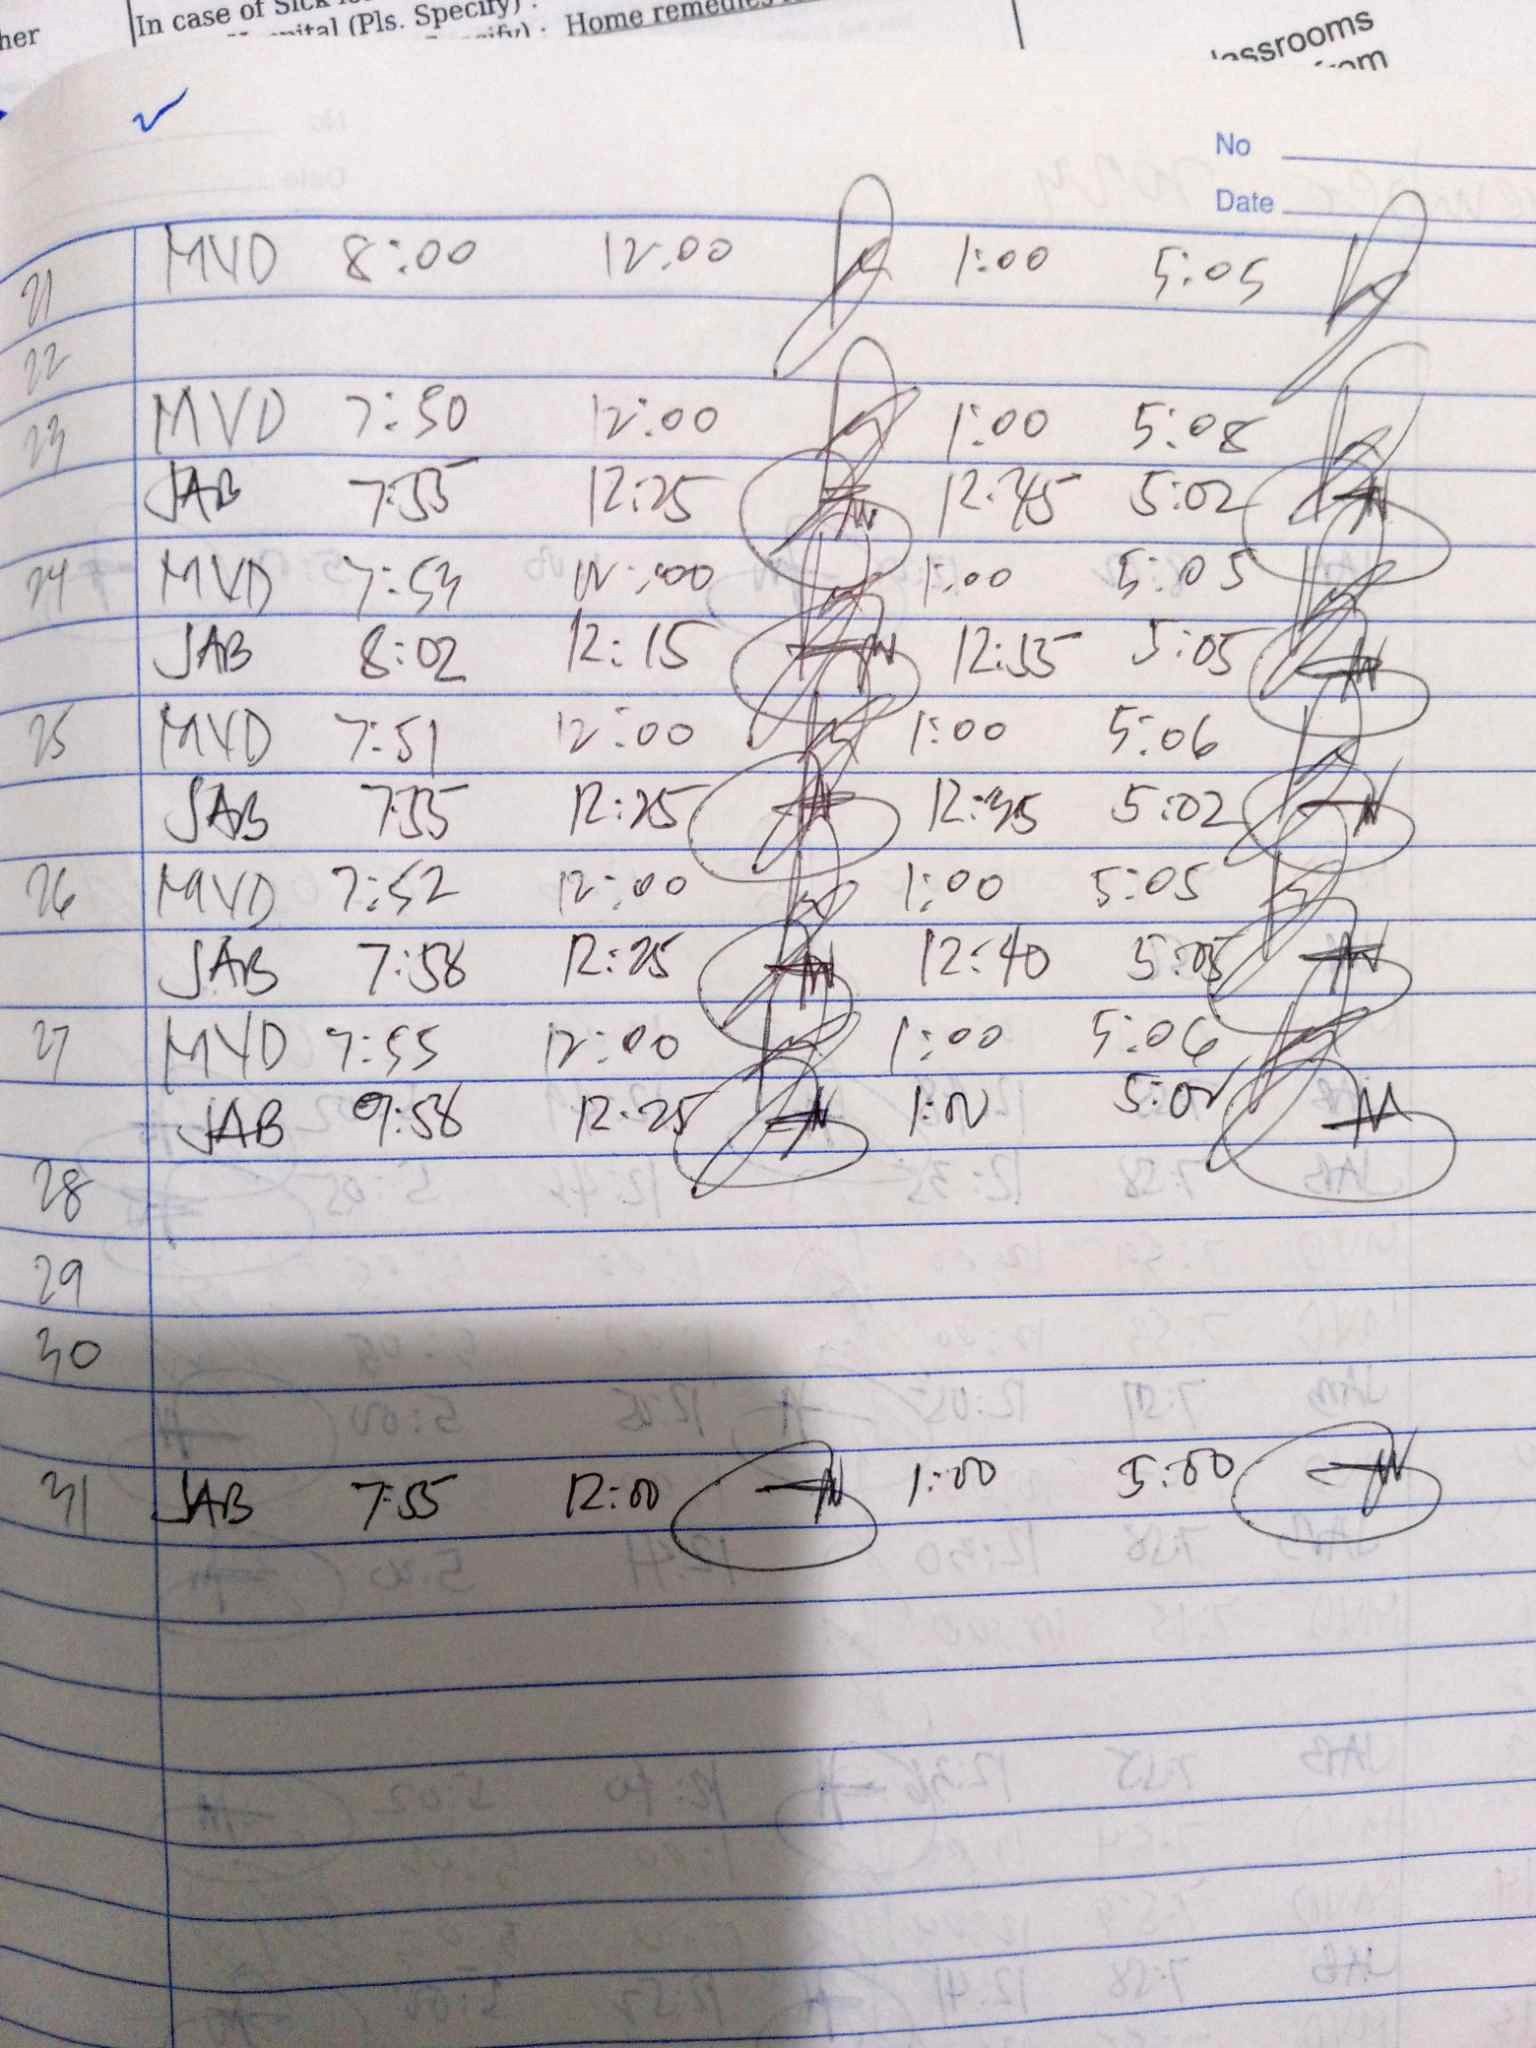 her
In case of Sick
(Pls. Specify) :
Home remedies
classrooms
from
No
Date
21 MVD 8:00 12:00 1:00 5:05
22
23 MVD 7:50 12:00 1:00 5:08
JAB 7:55 12:25 12:45 5:02
24 MVD 7:53 12:00 1:00 5:05
JAB 8:02 12:15 12:35 5:05
25 MVD 7:51 12:00 1:00 5:06
JAB 7:55 12:25 12:35 5:02
26 MVD 7:52 12:00 1:00 5:05
JAB 7:58 12:25 12:40 5:05
27 MVD 7:55 12:00 1:00 5:06
JAB 9:58 12:25 1:02 5:02
28
29
30
31 JAB 7:55 12:00 1:00 5:00